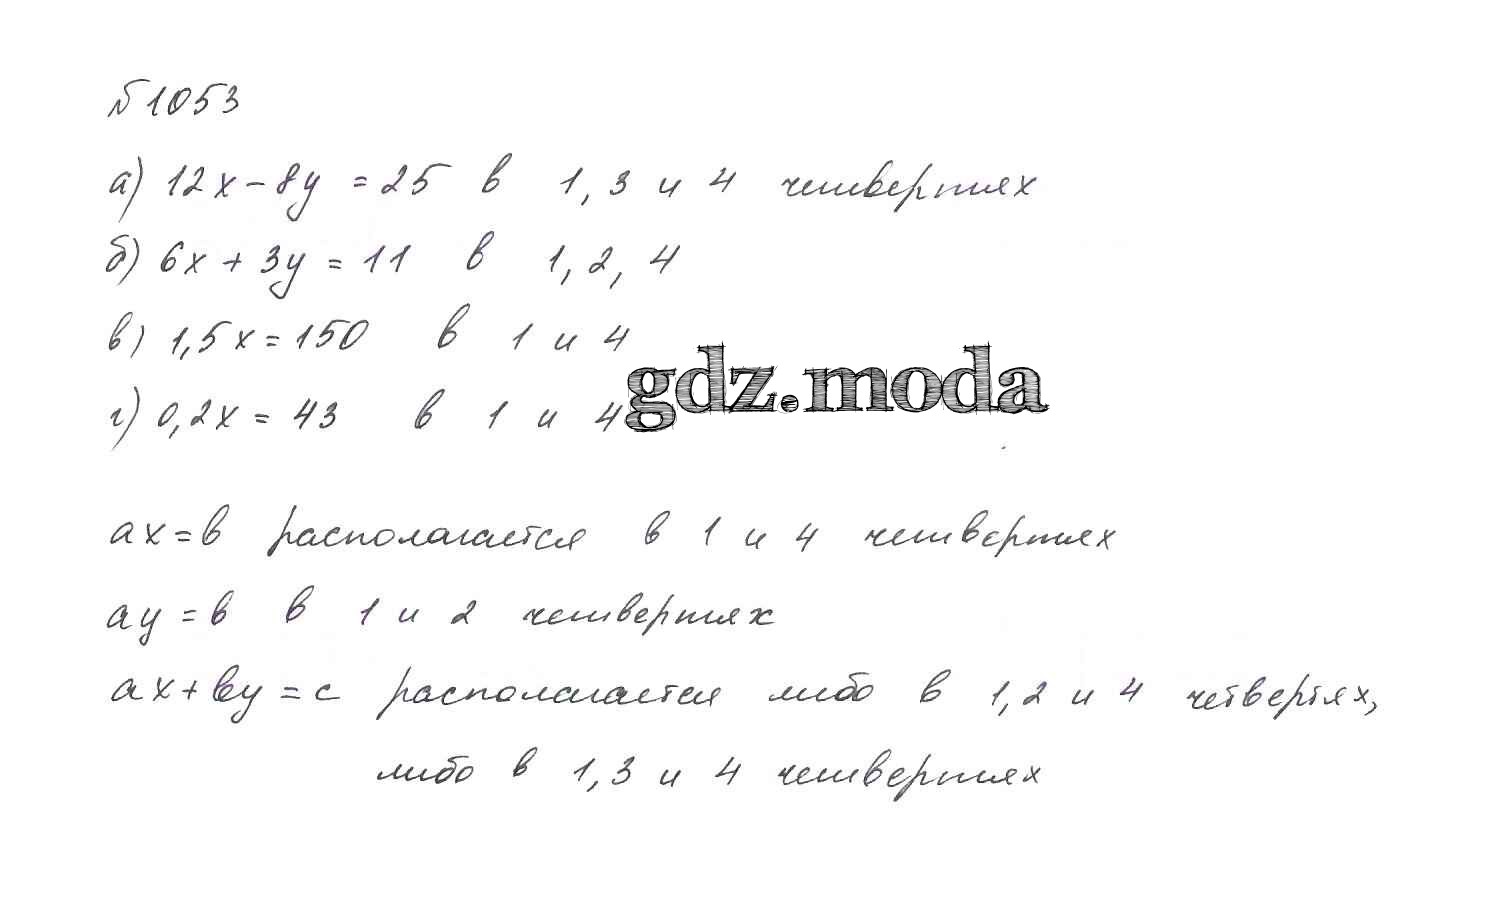 №1053
а) 12x - 8y = 25 в 1, 3 и 4 четвертях
б) 6x + 3y = 11 в 1, 2, 4
в) 1,5x = 150 в 1 и 4
г) 0,2x = 43 в 1 и 4
gdz.moda
ax = в располагается в 1 и 4 четвертях
ay = в в 1 и 2 четвертях
ax + вy = c располагается либо в 1, 2 и 4 четвертях,
либо в 1, 3 и 4 четвертях